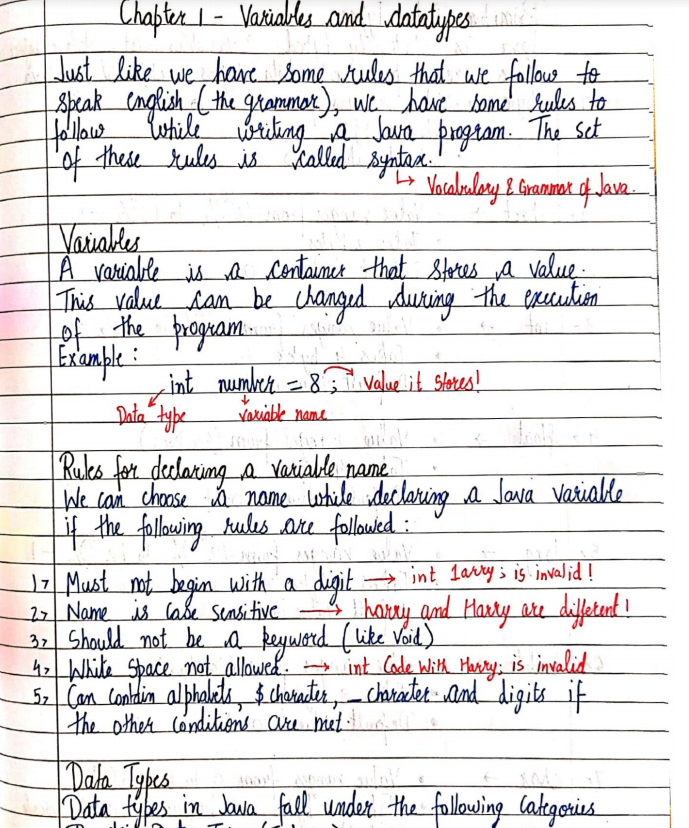 Chapter 1 - Variables and datatypes
Just like we have some rules that we follow to
speak english (the grammar), we have some rules to
follow while writing a Java program. The set
of these rules is called syntax.
↳ Vocabulary & Grammar of Java.
Variables
A variable is a container that stores a value.
This value can be changed during the execution
of the program.
Example :
int number = 8 ; → value it stores!
Data type variable name
Rules for declaring a variable name
We can choose a name while declaring a Java variable
if the following rules are followed :
1> Must not begin with a digit → int 1arry; is invalid!
2> Name is case sensitive → harry and Harry are different!
3> Should not be a keyword (like Void)
4> White Space not allowed. → int Code With Harry; is invalid
5> Can contain alphabets, $ character, _ character and digits if
the other conditions are met.
Data Types
Data types in Java fall under the following categories